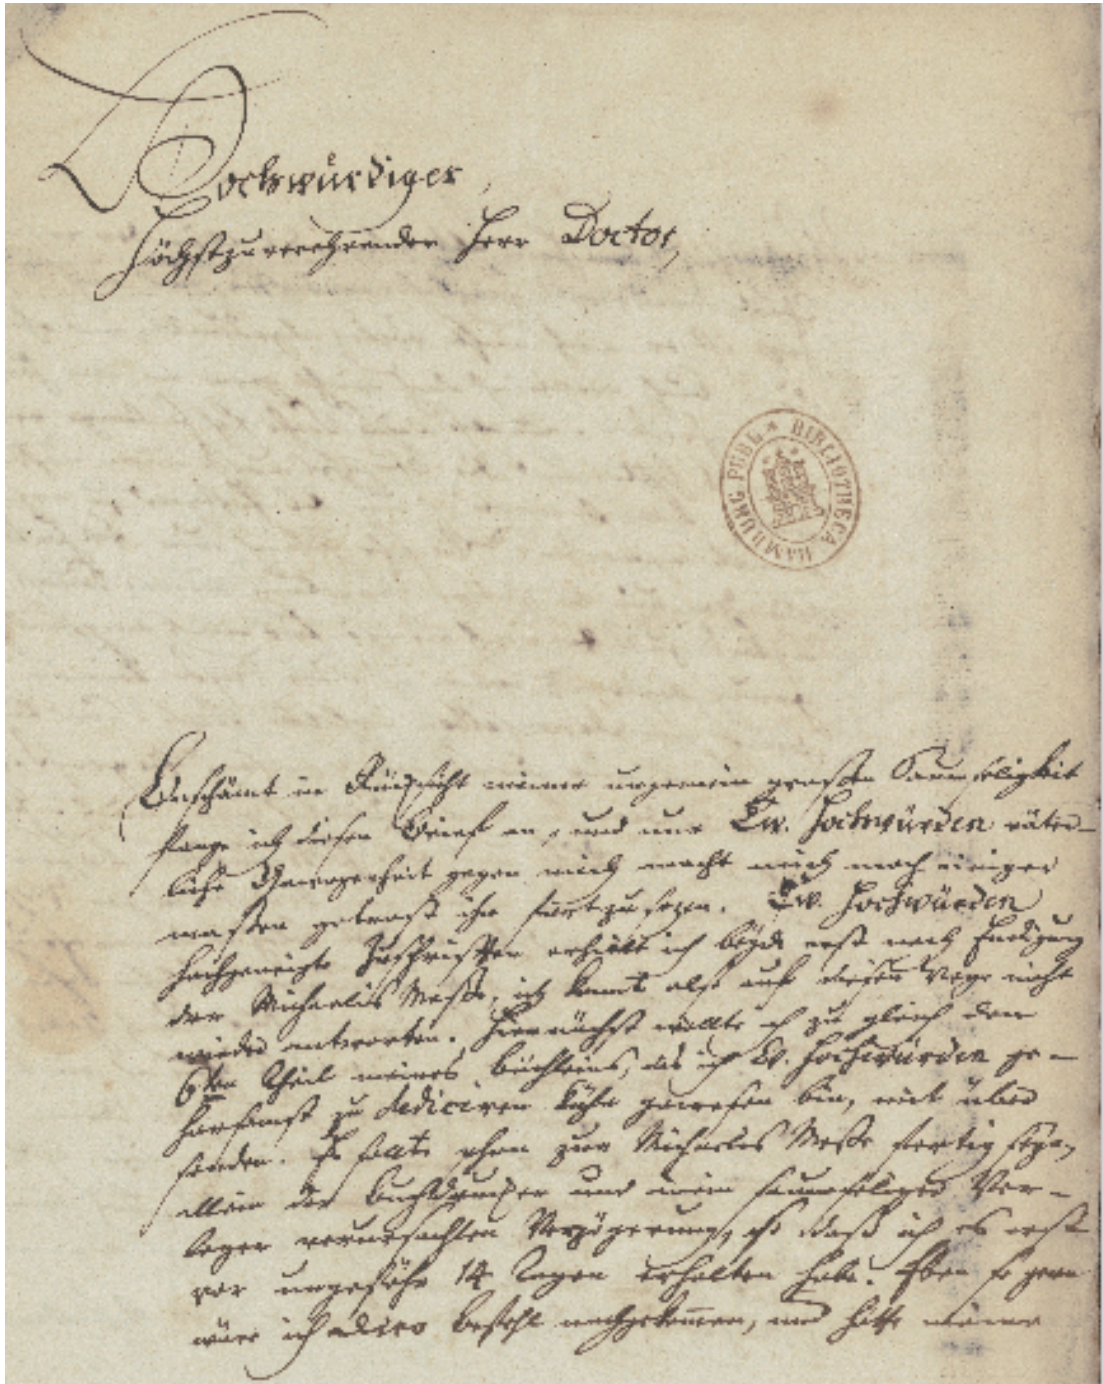 Hochwürdiger,
Höchstzuverehrender Herr Doctor,
PUBL. * BIBLIOTHECA HAMBURG
Beschämt in Rücksicht meiner ungemein großen Saumseligkeit
fange ich diesen Brief an, und nur Ew. Hochwürden väter-
liche Gewogenheit gegen mich macht mich noch einiger
maßen getrost ihn fortzusetzen. Ew. Hochwürden
hochgeneigte Zuschriften erhielte ich beyde erst nach Endigung
der Michaelis Meße, ich konnte also auf diesem Wege nicht
wieder antworten. Hiernächst wollte ich zu gleich den
6ten Theil meines Büchleins, das ich Ew. Hochwürden ge-
horsamst zu dediciren kühn gewesen bin, mit über
senden. Er sollte schon zur Michaelis Meße fertig seyn,
allein der Buchdrucker und mein saumseliger Ver-
leger verursachten Verzögerung, so daß ich es erst
vor ungefähr 14 Tagen erhalten habe. Eben so gern
wäre ich Dero Befehl nachgekommen, und hätte meine